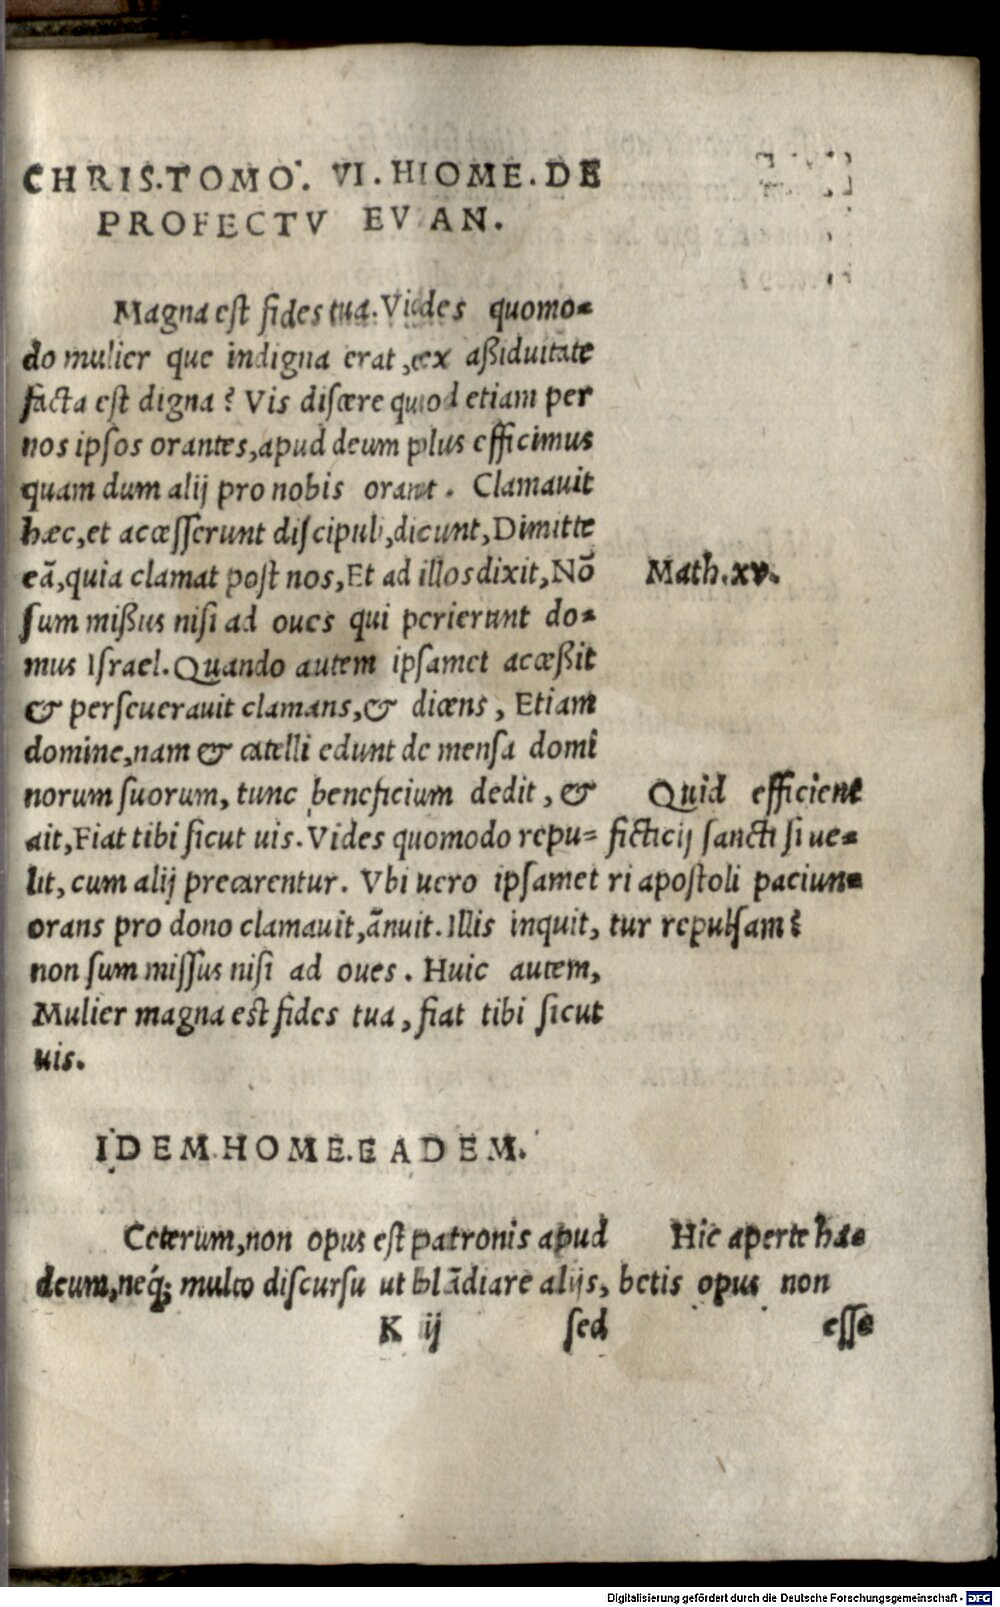 CHRIS.TOMO. VI. HIOME. DE
PROFECTV EVAN.
Magna est fides tua. Vides quomo=
do mulier que indigna erat, ex aßiduitate
facta est digna? Vis discere quod etiam per
nos ipsos orantes, apud deum plus efficimus
quam dum alij pro nobis orant. Clamauit
hæc, et accesserunt discipuli, dicunt, Dimitte
eā, quia clamat post nos, Et ad illos dixit, Nō
sum mißus nisi ad oues qui perierunt do=
mus Israel. Quando autem ipsamet acceßit
& perseuerauit clamans, & dicens, Etiam
domine, nam & catelli edunt de mensa domi
norum suorum, tunc beneficium dedit, &
ait, Fiat tibi sicut uis. Vides quomodo repu=
lit, cum alij precarentur. Vbi uero ipsamet
orans pro dono clamauit, ānuit. Illis inquit,
non sum missus nisi ad oues. Huic autem,
Mulier magna est fides tua, fiat tibi sicut
uis.
Math.xv.
Quid efficient
ficticij sancti si ue=
ri apostoli paciun=
tur repulsam?
IDEM. HOME. EADEM.
Ceterum, non opus est patronis apud
deum, neq́; multo discursu ut blādiare alijs,
Hic aperte ha=
betis opus non
K ij sed
esse
Digitalisierung gefördert durch die Deutsche Forschungsgemeinschaft - DFG